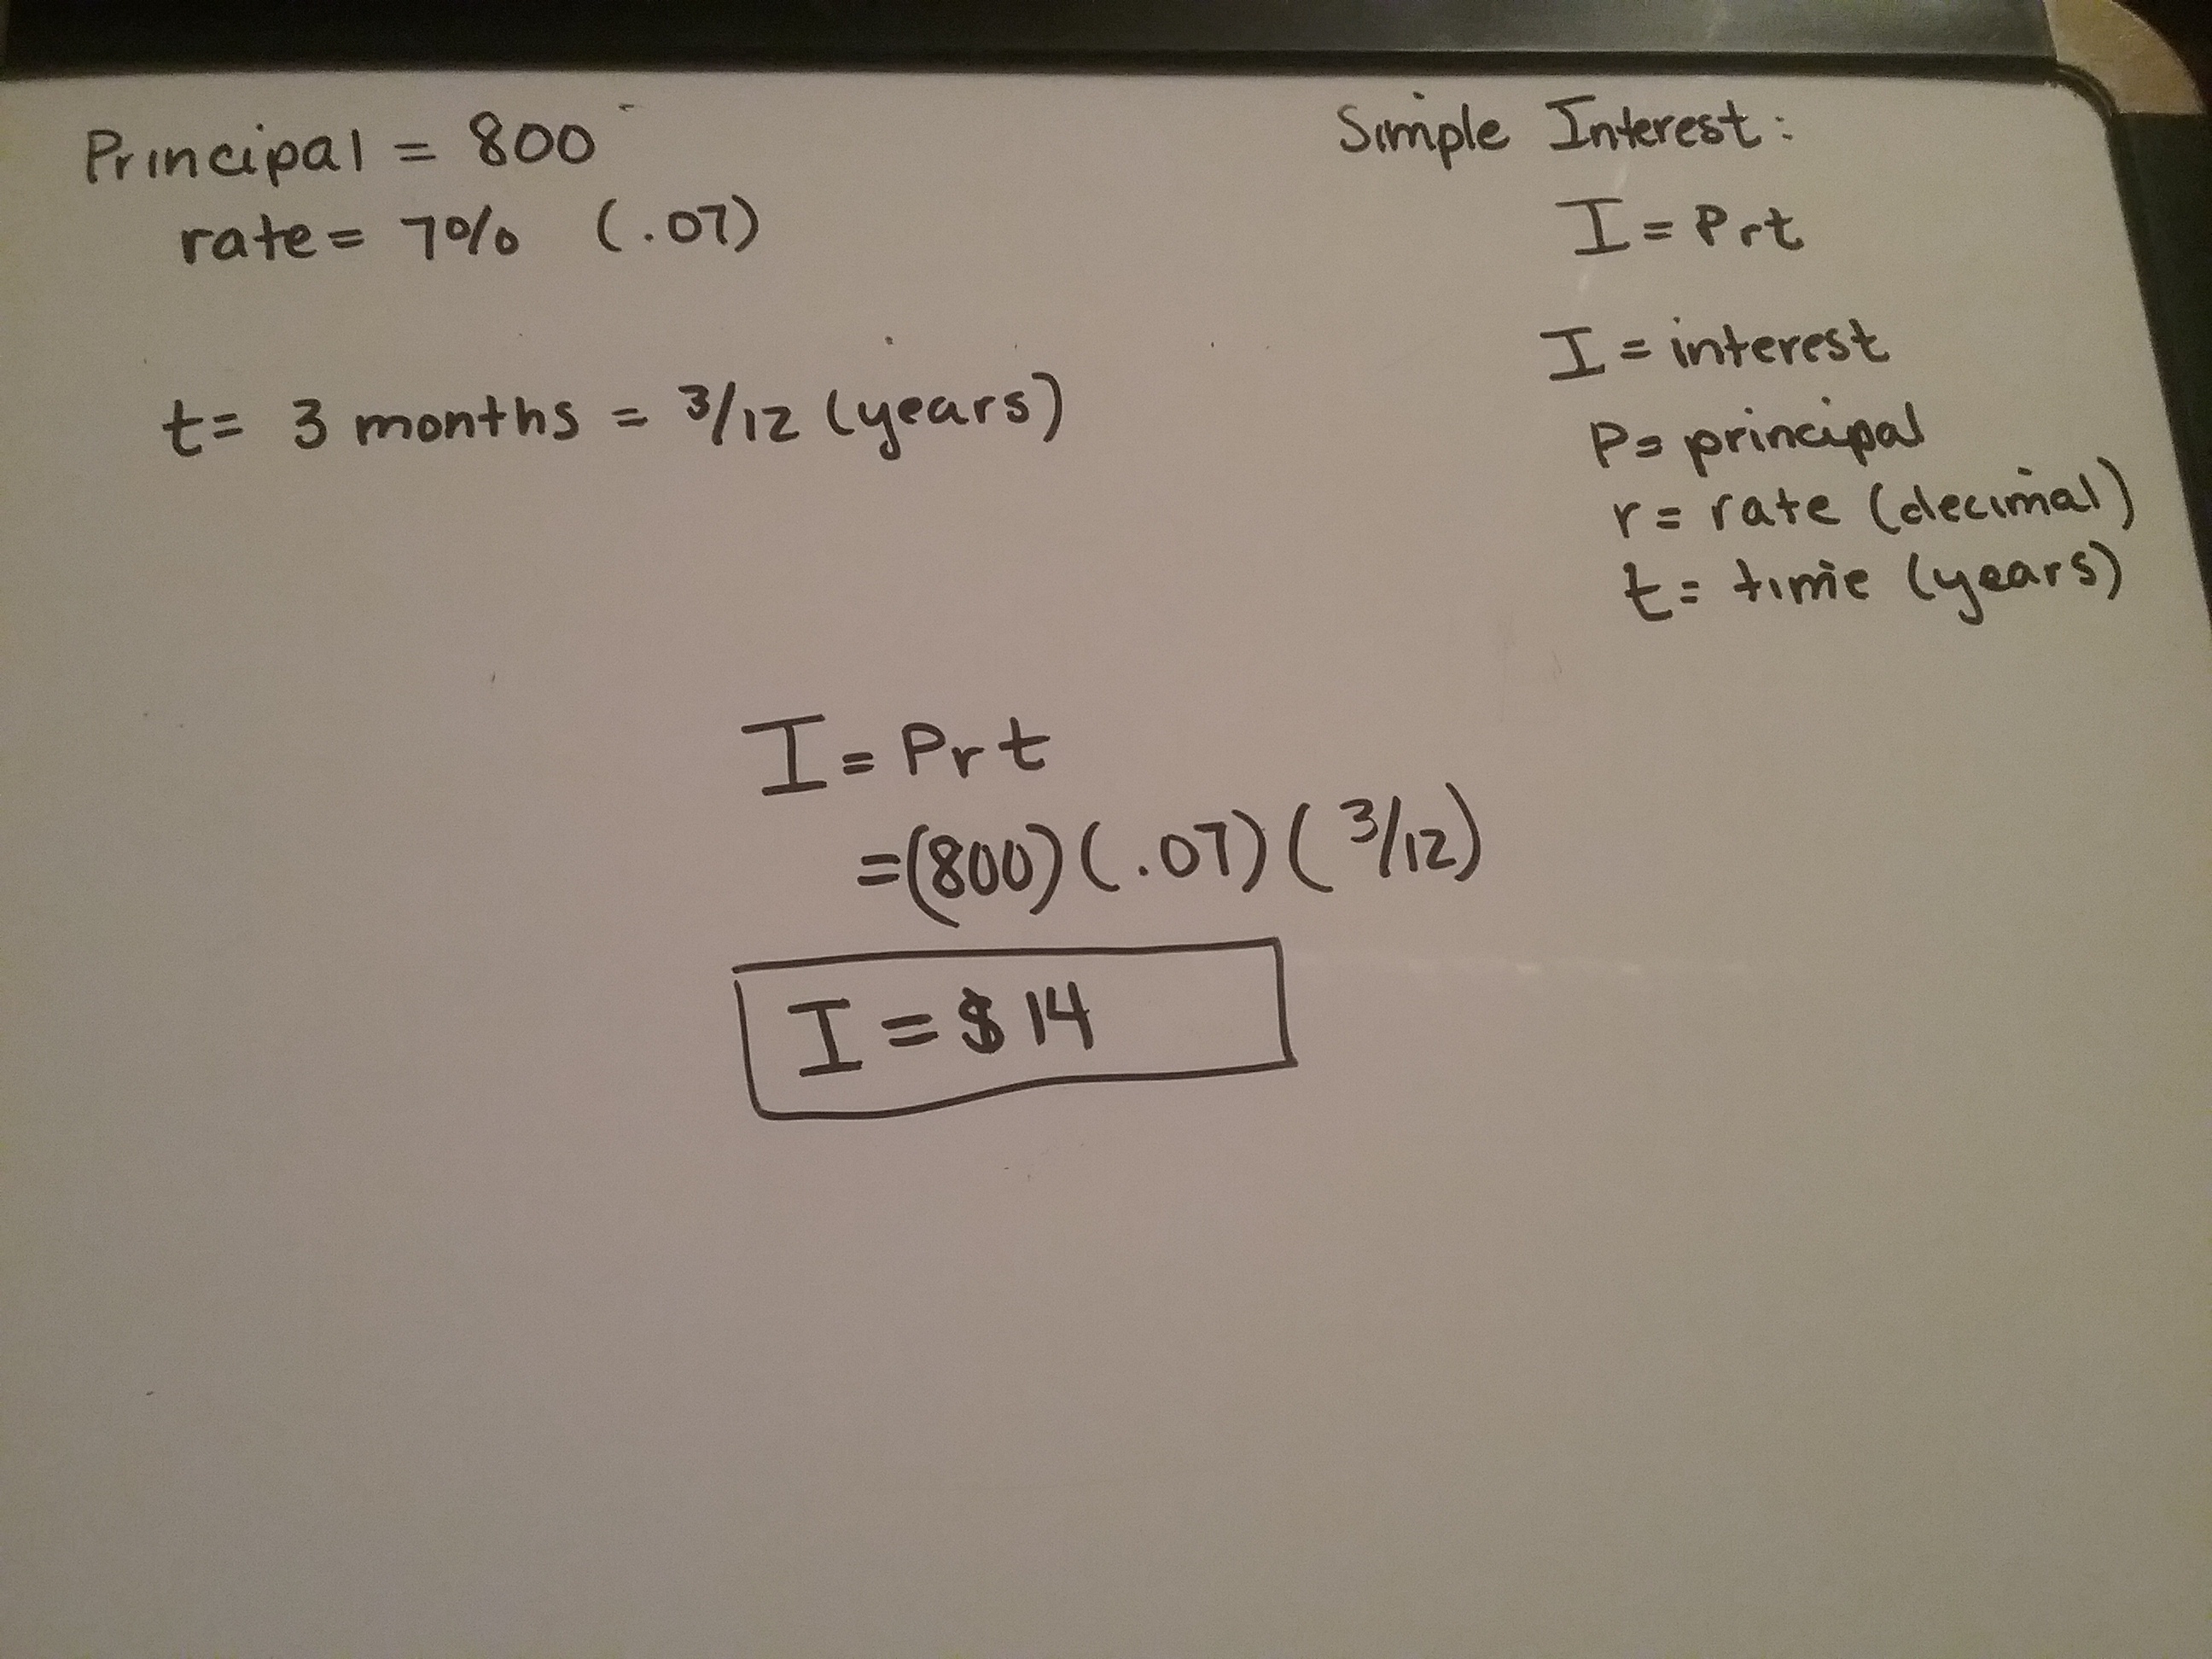 Principal = 800
rate = 7% (.07)
t = 3 months = 3/12 (years)
Simple Interest:
I = Prt
I = interest
P = principal
r = rate (decimal)
t = time (years)
I = Prt
=(800)(.07)(3/12)
I = $14